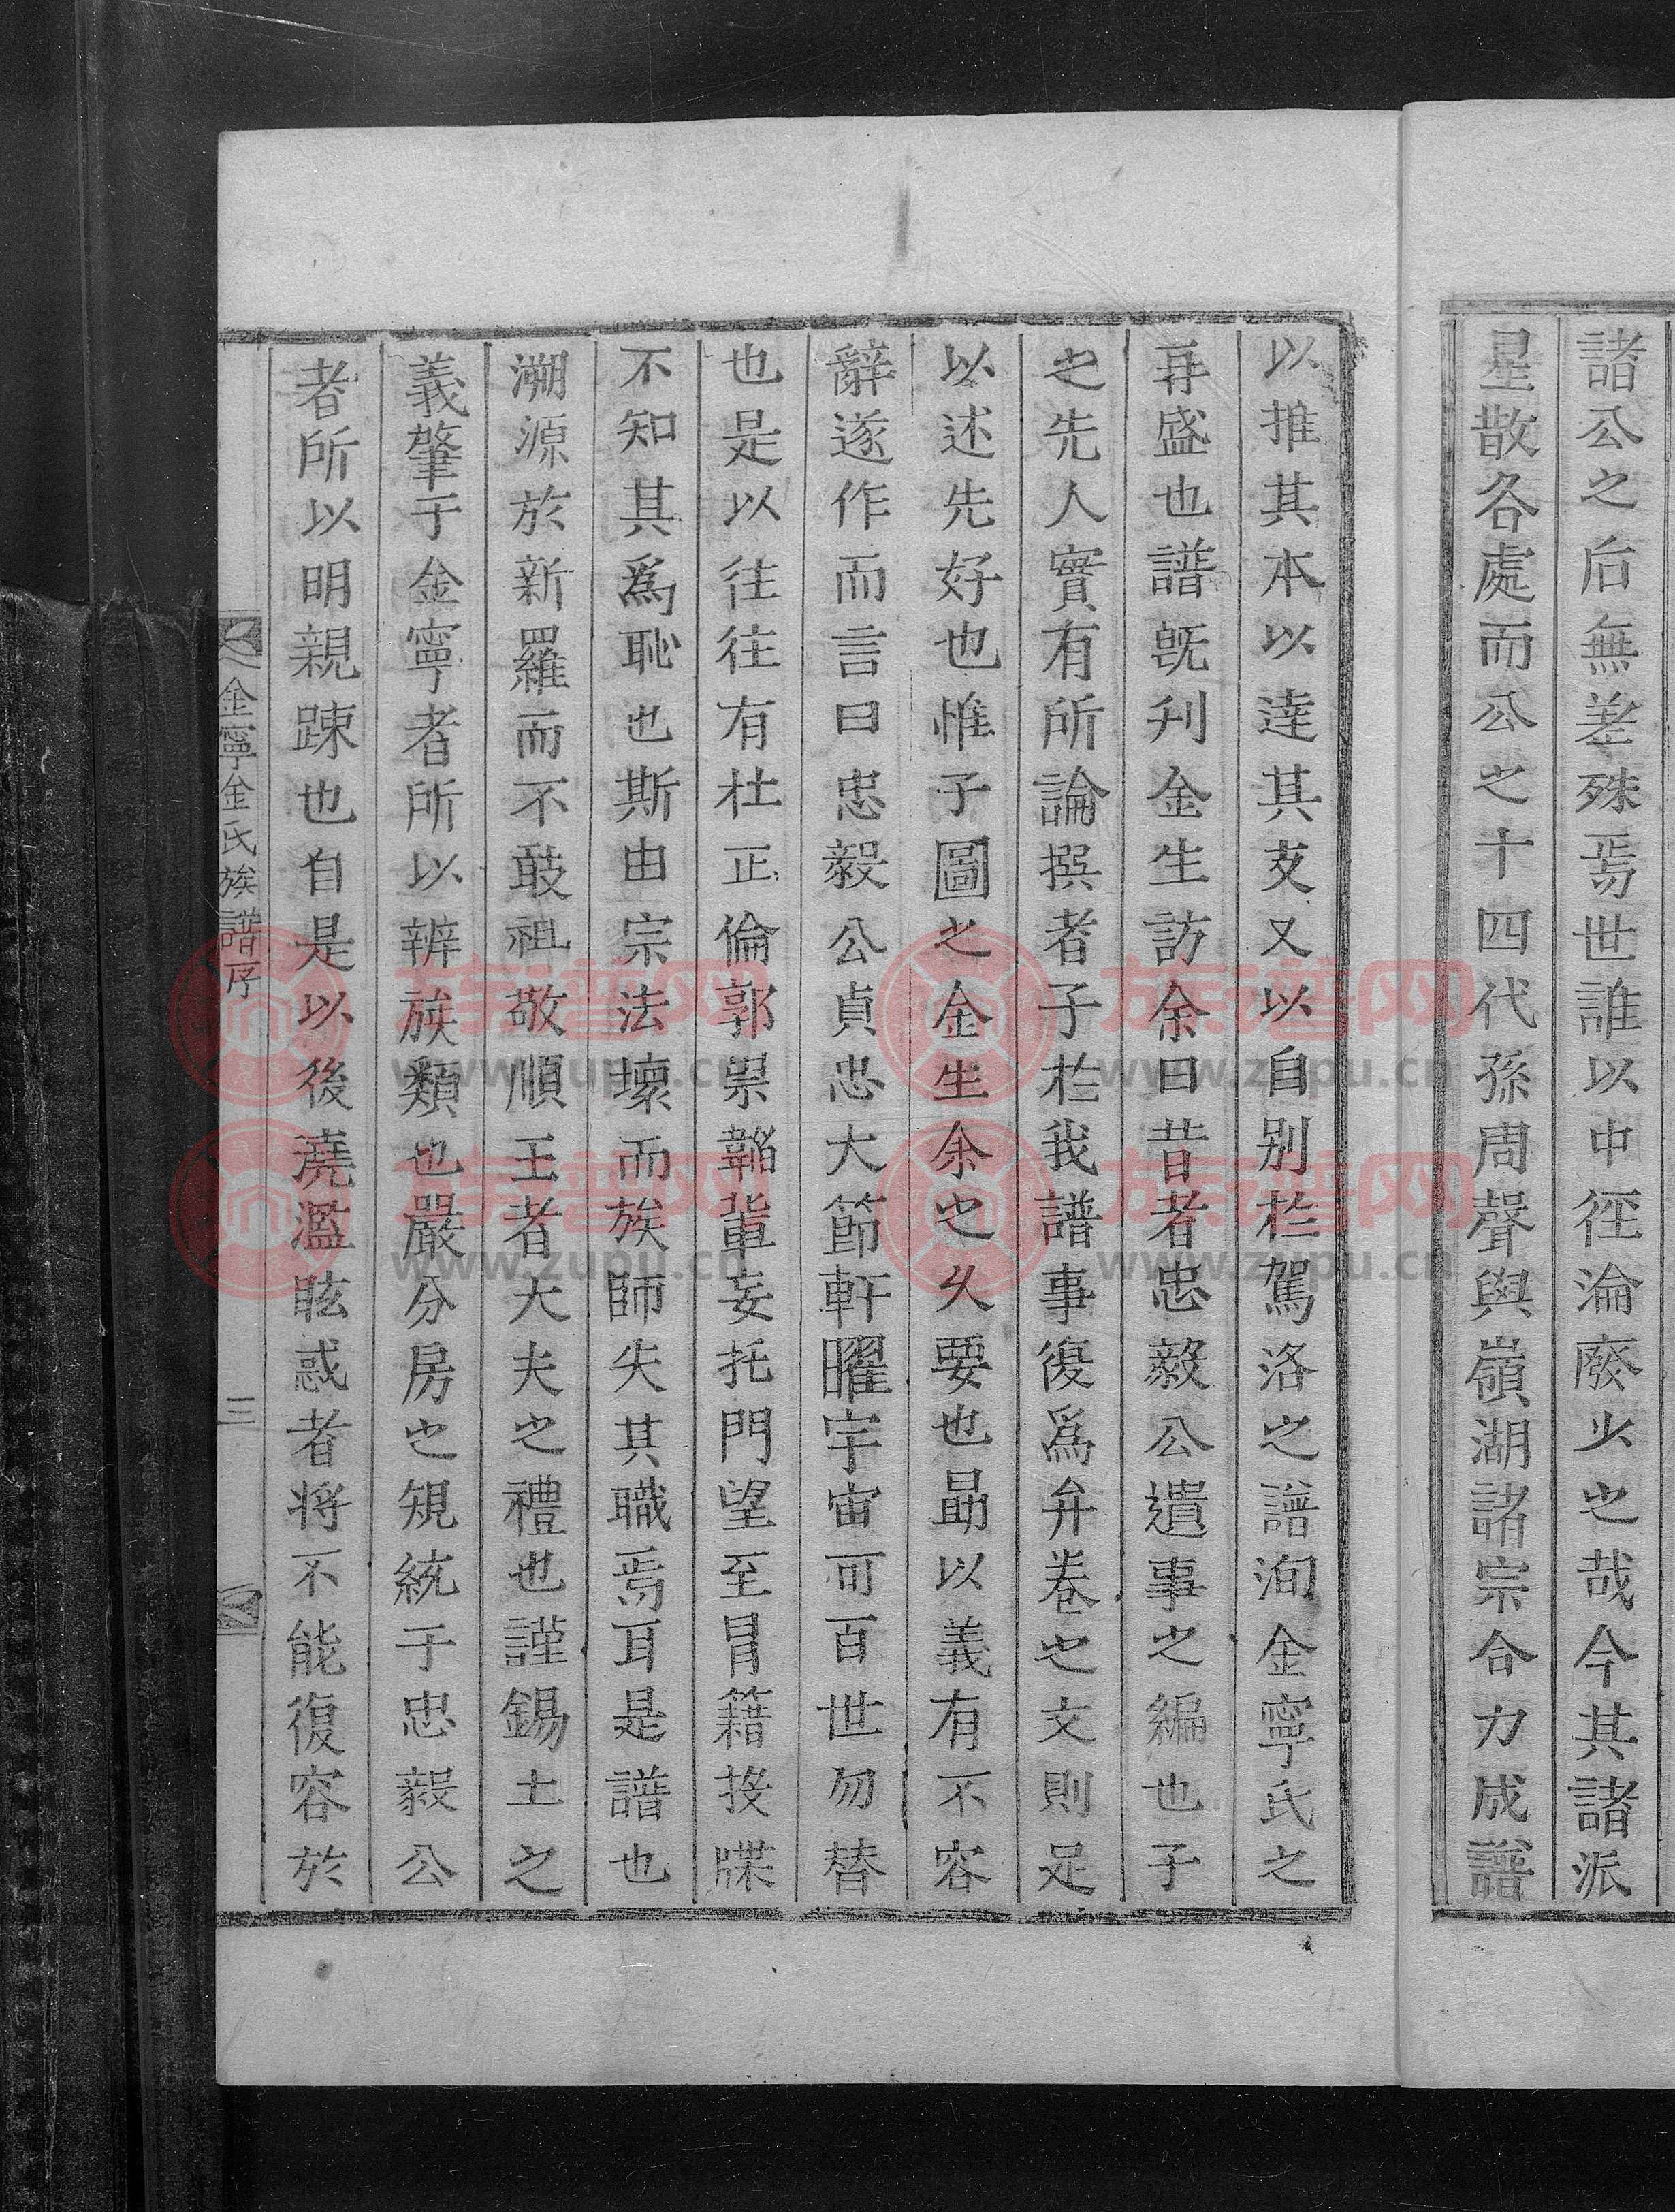 諸公之后無差殊焉世誰以中徑淪廢少之哉今其諸派
星散各處而公之十四代孫周聲與嶺湖諸宗合力成譜
以推其本以達其支又以自别於駕洛之譜洵金寧氏之
再盛也譜旣刋金生訪余曰昔者忠毅公遺事之編也子
之先人實有所論撰者子於我譜事復爲弁卷之文則足
以述先好也惟子圖之金生余之久要也勗以義有不容
辭遂作而言曰忠毅公貞忠大節軒曜宇宙可百世勿替
也是以往往有杜正倫郭崇韜輩妄托門望至冒籍投牒
不知其爲恥也斯由宗法壞而族師失其職焉耳是譜也
溯源於新羅而不敢祖敬順王者大夫之禮也謹錫土之
義肇于金寧者所以辨族類也嚴分房之䂓統于忠毅公
者所以明親踈也自是以後澆濫眩惑者将不能復容於
金寧金氏族譜序
三
族谱网
www.zupu.cn
族谱网
www.zupu.cn
族谱网
www.zupu.cn
族谱网
www.zupu.cn